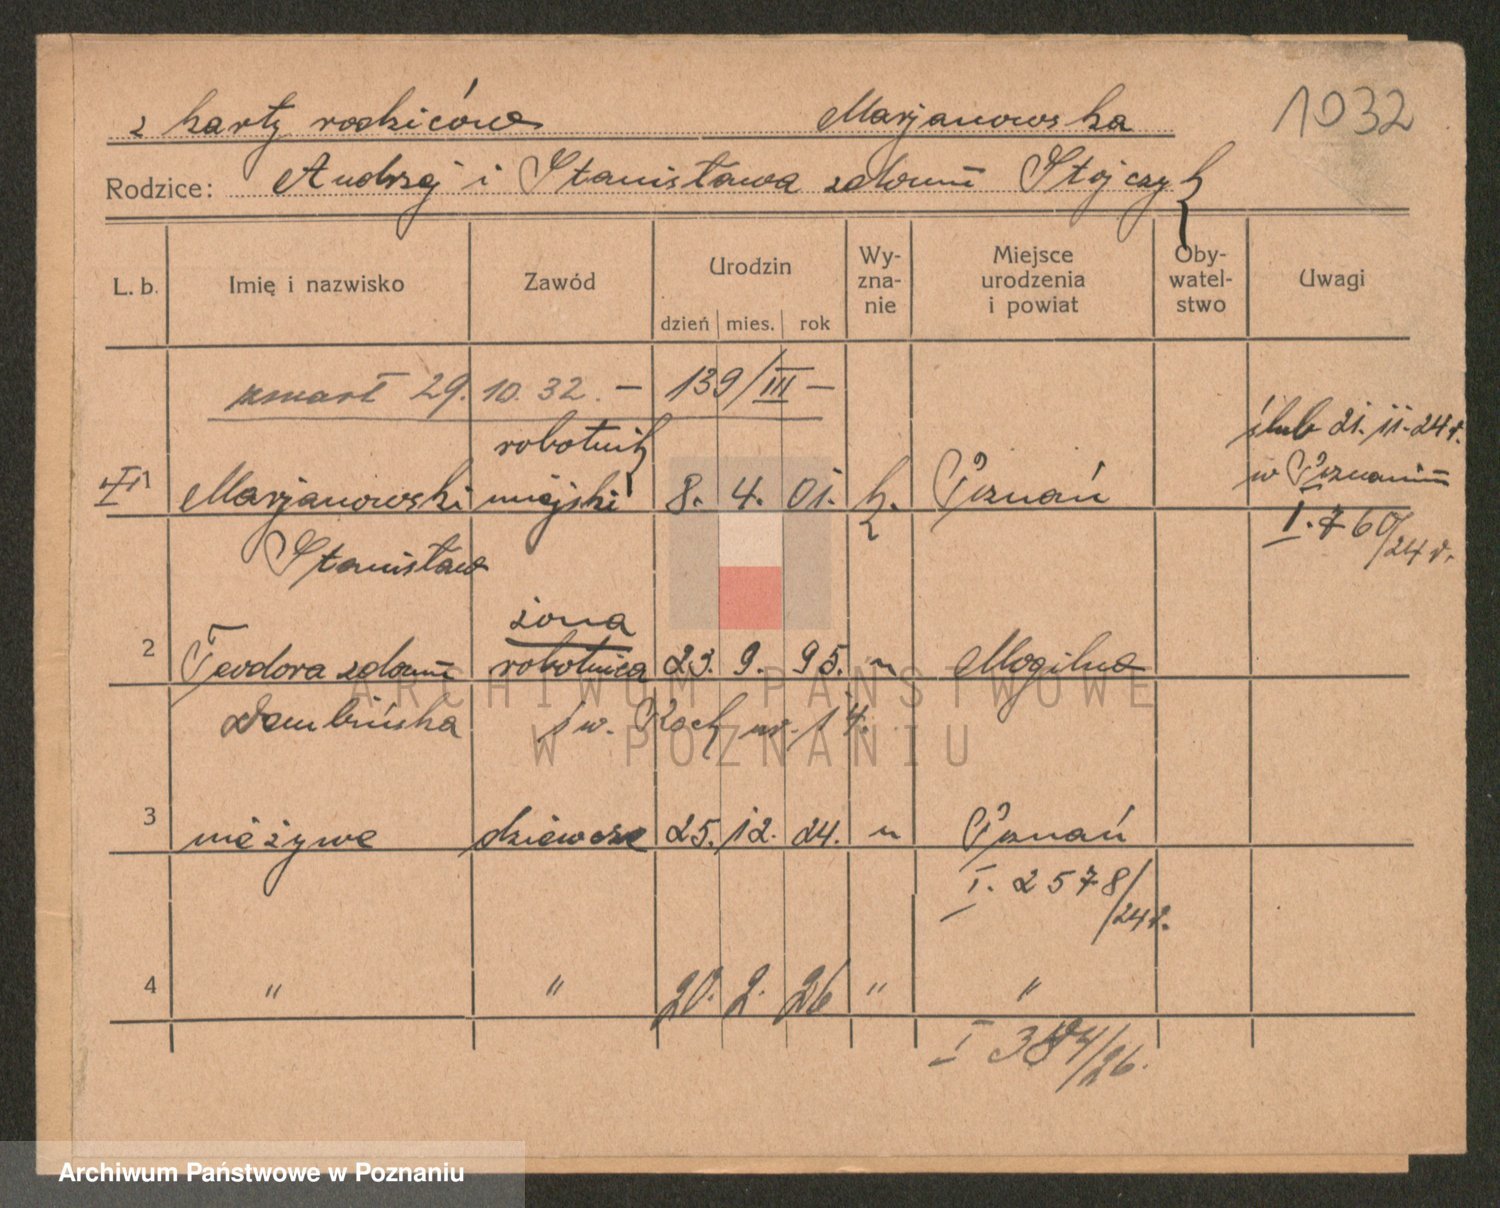 z karty rodziców Marjanowska
1032
Rodzice: Andrzej i Stanisława z domu Stójczyk
L. b. Imię i nazwisko Zawód Urodzin dzień mies. rok Wy-zna-nie Miejsce urodzenia i powiat Oby-watel-stwo Uwagi
zmarł 29.10.32. — 139/III —
robotnik ślub 21.11.24 r.
1 Marjanowski miejski 8. 4. 01. k. Poznań w Poznaniu
Stanisław I. 760/24 r.
żona
2 Teodora z domu robotnica 23. 9. 95. " Mogilno
Dembińska św. Roch nr. 14.
3 nieżywe dziewcze 25. 12. 24. " Poznań
I. 2578/24 r.
4 " " 20. 2. 26 " "
I 384/26.
ARCHIWUM PAŃSTWOWE
W POZNANIU
Archiwum Państwowe w Poznaniu